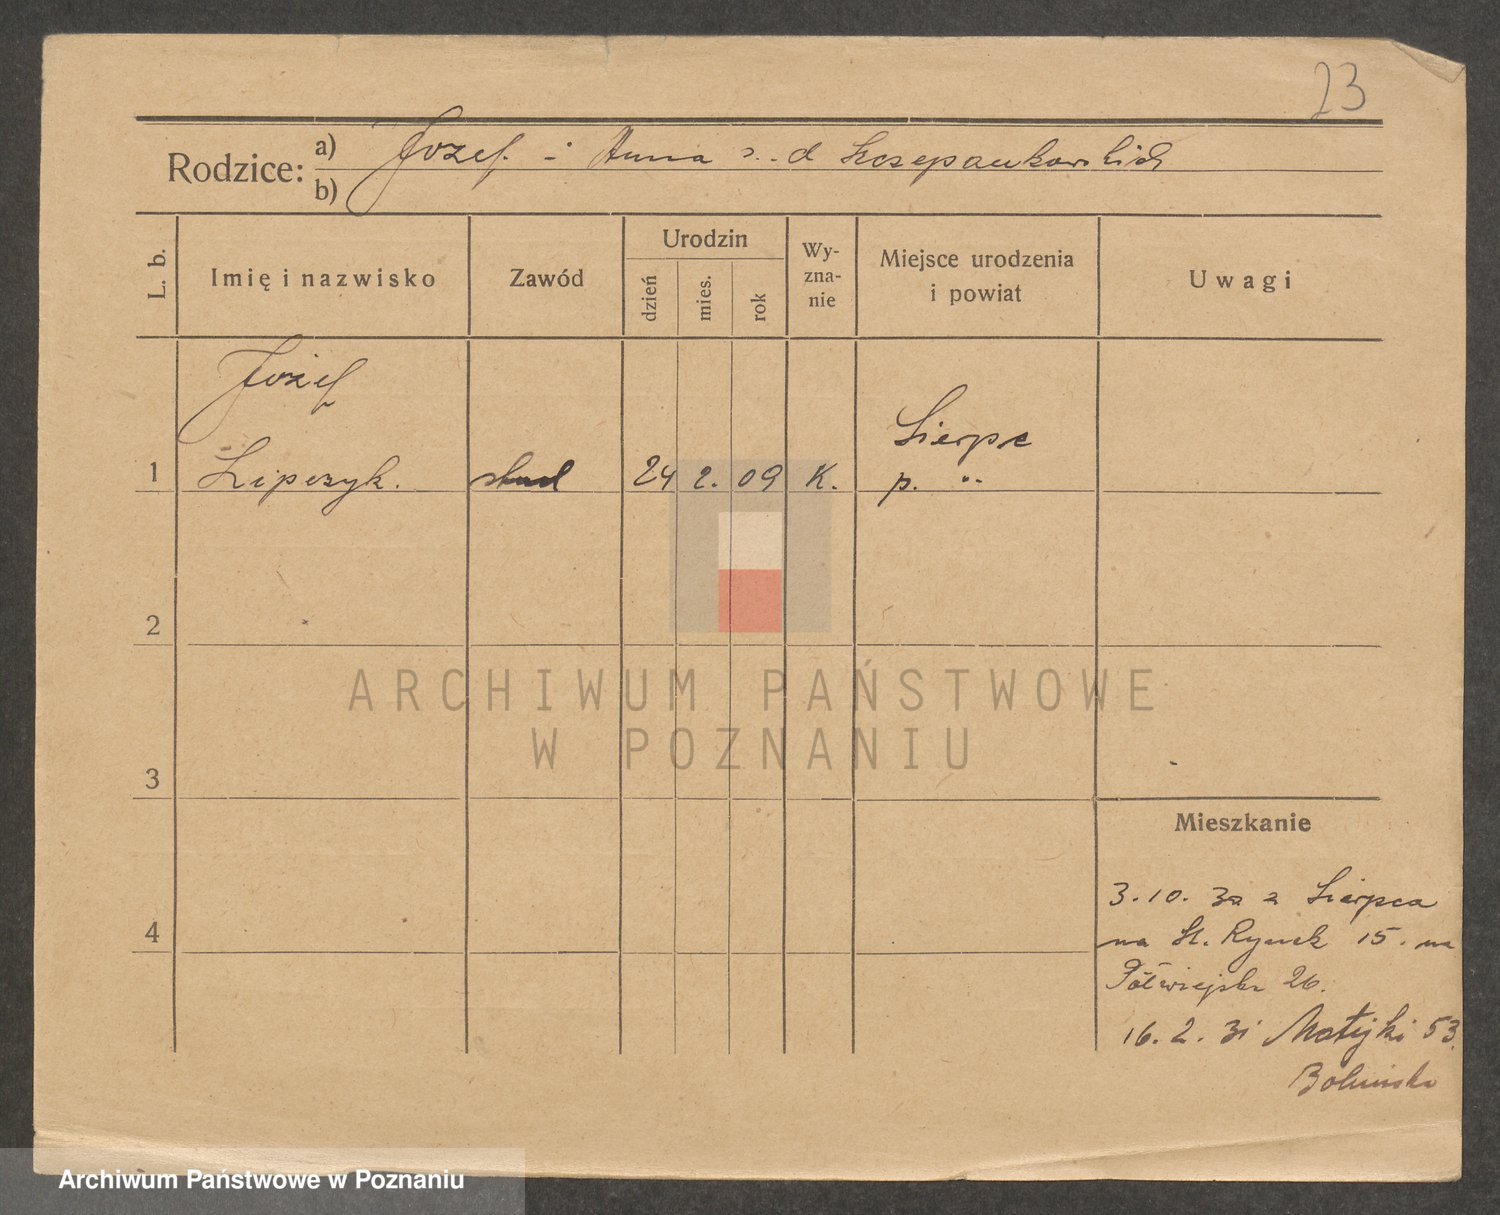 23
Rodzice: a) Józef i Anna z d Szczepankowskich
b)
L. b.
Imię i nazwisko
Zawód
Urodzin
dzień
mies.
rok
Wy-
zna-
nie
Miejsce urodzenia
i powiat
Uwagi
Józef
Sierpc
1 Lipczyk. stud 24 2. 09 K. p. "
2
3
4
ARCHIWUM PAŃSTWOWE
W POZNANIU
Mieszkanie
3.10. 30 z Sierpca
na St. Rynek 15. na
Półwiejska 26.
16.2.31 Matejki 53.
Archiwum Państwowe w Poznaniu